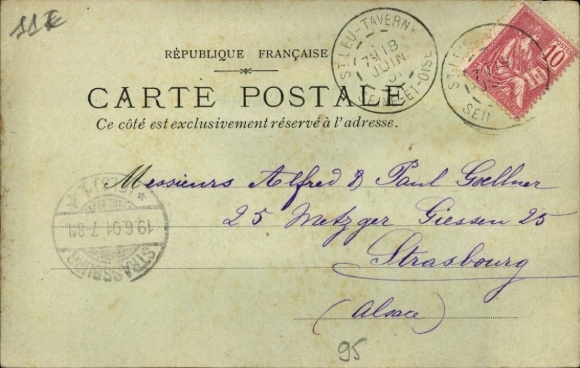 11€
RÉPUBLIQUE FRANÇAISE
CARTE POSTALE
Ce côté est exclusivement réservé à l'adresse.
ST-LEU-TAVERNY
18
JUIN
01
SEINE-ET-OISE
ST-LEU
POSTES
10
Messieurs Alfred & Paul Goellner
25 Metzger Giessen 25
Strasbourg
(Alsace)
19.6.01.7-8
STRASSBURG
95